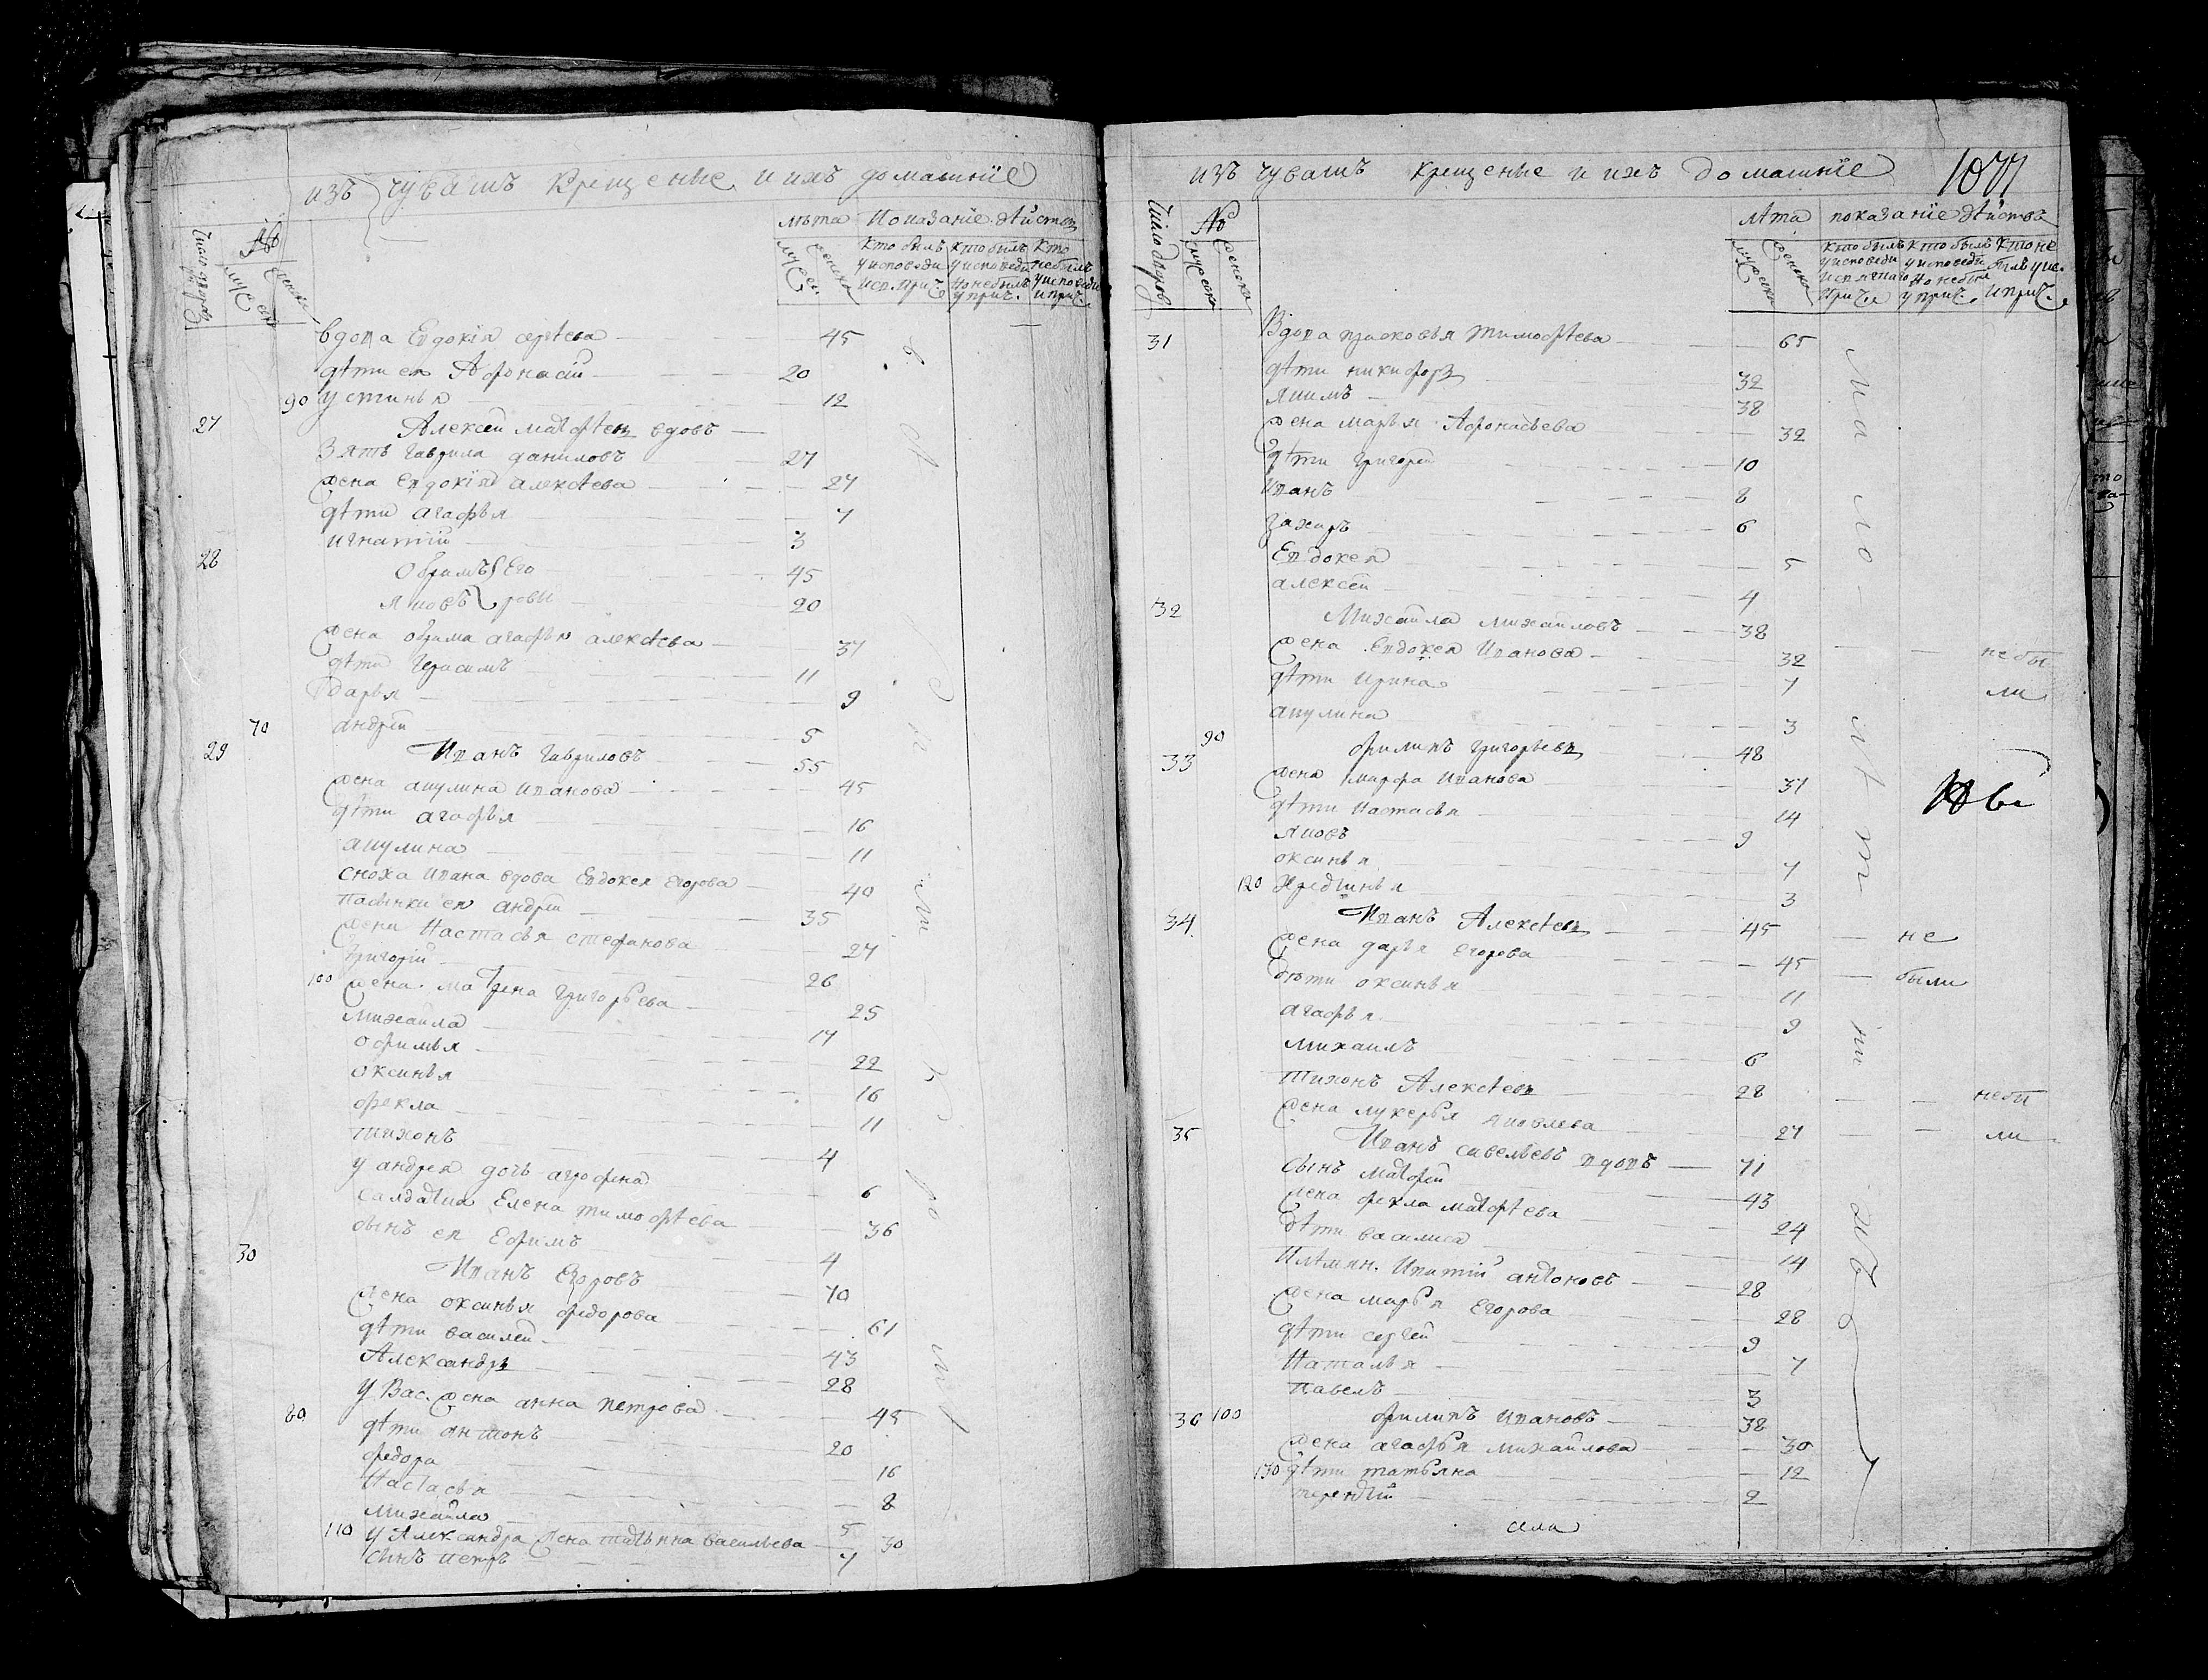 изъ чувашъ крещеные и ихъ домашнiе
лѣта Показанiе дѣйствъ
Число дворовъ № мужеска женска
мужеска женска
кто былъ у исповеди и с. прич. кто былъ у исповеди но небылъ у прич. кто небылъ у исповеди и прич.
вдова Евдокiя сергѣева 45
дѣти ея Афонасiй 20
90 устинья 12
27 Алексей матфѣевъ вдовъ
Зять гаврила даниловъ 27
жена Евдокiя алексѣева 27
дѣти агафья 7
игнатiй 3
28 Офримъ Его 45
яковъ ровы 20
жена офрима агафья алексѣева 37
дѣти герасимъ 11
дарья 9
70 андрей 5
29 Иванъ гавриловъ 55
жена акулина иванова 45
дѣти агафья 16
акулина 11
сноха ивана вдова Евдокея егорова 40
пасынки ея андрей 35
жена Настасья стефанова 27
григорiй 26
100 жена матрена григорьева 25
михаила 17
офимья 22
оксинья 16
фекла 11
тихонъ 4
у андрея дочь агрофена 6
салдатка Елена тимофѣева 36
сынъ ея Ефимъ 4
30 Иванъ Егоровъ 70
жена оксинья федорова 61
дѣти василей 43
Александръ 28
у Вас. жена анна петрова 45
80 дѣти антонъ 20
федора 16
Настасья 8
михайла 5
110 у Александра жена татьяна васильева 30
сынъ петръ 7
изъ чувашъ крещеные и ихъ домашнiе 1077
лѣта показанiе дѣйствъ
Число дворовъ № мужеска женска
мужеска женска
кто былъ у исповеди и святаго прич. кто былъ у исповеди но небылъ у прич. кто не былъ у исп. и прич.
31 Вдова прасковья тимофѣева 65
дѣти никифоръ 32
якимъ 38
жена марья Афонасьева 32
дѣти григорей 10
иванъ 8
захаръ 6
Евдокея 5
алексей 4
32 Михаила михайловъ 38
жена Евдокея Иванова 32 небы
дѣти ирина 7 ли
акулина 3
90
33 филипъ григорьевъ 48
жена марфа иванова 37
дѣти настасья 14
яковъ 9
оксинья 7
120 3
34 Иванъ Алексѣевъ 45 не
жена дарья егорова 45 были
дѣти оксинья 11
агафья 9
михаилъ 6
тихонъ Алексѣевъ 28 небы
жена лукерья яковлева 27 ли
35 Иванъ савельевъ вдовъ 71
сынъ матфей 43
жена фекла матфѣева 24
дѣти василиса 14
племян. Ипатiй антоновъ 28
жена марья егорова 28
дѣти сергей 9
Наталья 7
павелъ 3
36 100 филипъ ивановъ 38
жена агафья михайлова 30
130 дѣти татьяна 12
терентiй 2
малолѣтни